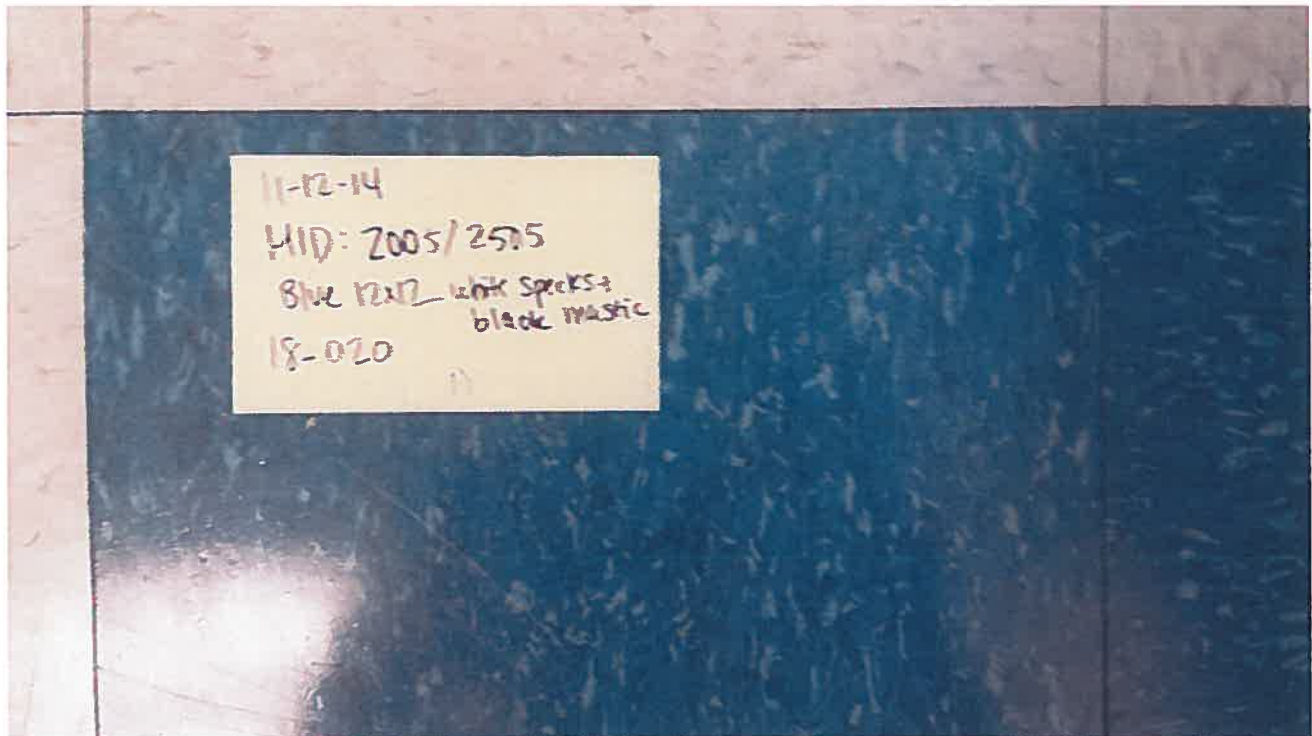 11-12-14
HID: 2005/2505
Blue 12x12 white specks +
black mastic
18-020